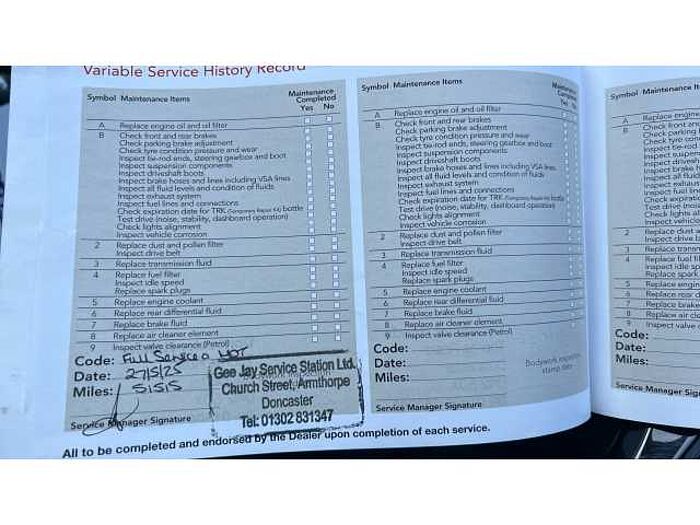 Variable Service History Record
Symbol Maintenance Items Maintenance Completed Yes No
A Replace engine oil and oil filter
B Check front and rear brakes
Check parking brake adjustment
Check tyre condition pressure and wear
Inspect tie-rod ends, steering gearbox and boot
Inspect suspension components
Inspect driveshaft boots
Inspect brake hoses and lines including VSA lines
Inspect all fluid levels and condition of fluids
Inspect exhaust system
Inspect fuel lines and connections
Check expiration date for TRK (Temporary Repair Kit) bottle
Test drive (noise, stability, dashboard operation)
Check lights alignment
Inspect vehicle corrosion
2 Replace dust and pollen filter
Inspect drive belt
3 Replace transmission fluid
4 Replace fuel filter
Inspect idle speed
Replace spark plugs
5 Replace engine coolant
6 Replace rear differential fluid
7 Replace brake fluid
8 Replace air cleaner element
9 Inspect valve clearance (Petrol)
Code: Full Service & MOT
Date: 27/5/25
Miles: 51515
Service Manager Signature
Gee Jay Service Station Ltd.
Church Street, Armthorpe
Doncaster
Tel: 01302 831347
Symbol Maintenance Items Maintenance Completed Yes No
A Replace engine oil and oil filter
B Check front and rear brakes
Check parking brake adjustment
Check tyre condition pressure and wear
Inspect tie-rod ends, steering gearbox and boot
Inspect suspension components
Inspect driveshaft boots
Inspect brake hoses and lines including VSA lines
Inspect all fluid levels and condition of fluids
Inspect exhaust system
Inspect fuel lines and connections
Check expiration date for TRK (Temporary Repair Kit) bottle
Test drive (noise, stability, dashboard operation)
Check lights alignment
Inspect vehicle corrosion
2 Replace dust and pollen filter
Inspect drive belt
3 Replace transmission fluid
4 Replace fuel filter
Inspect idle speed
Replace spark plugs
5 Replace engine coolant
6 Replace rear differential fluid
7 Replace brake fluid
8 Replace air cleaner element
9 Inspect valve clearance (Petrol)
Code:
Date:
Miles:
Bodywork inspection
stamp date
Service Manager Signature
All to be completed and endorsed by the Dealer upon completion of each service.
Symbol Maintenance It
A Replace engine
B Check front and
Check parking
Check tyre con
Inspect tie-rod
Inspect suspen
Inspect drivesh
Inspect brake h
Inspect all fluid
Inspect exhaust
Inspect fuel line
Check expiratio
Test drive (nois
Check lights ali
Inspect vehicle
2 Replace dust a
Inspect drive b
3 Replace transm
4 Replace fuel fil
Inspect idle sp
Replace spark
5 Replace engine
6 Replace rear d
7 Replace brake
8 Replace air cle
9 Inspect valve c
Code:
Date:
Miles:
Service Manager Sign